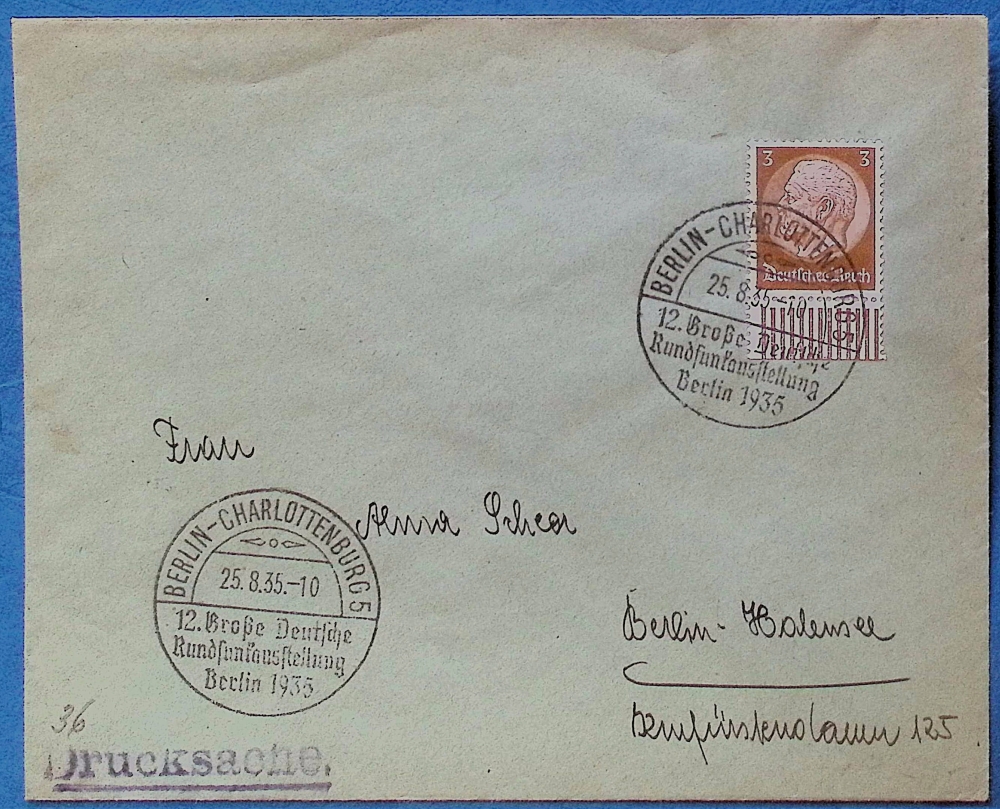 3 3
Deutsches Reich
BERLIN-CHARLOTTENBURG 5
25.8.35.-10
12. Große Deutsche
Rundfunkausstellung
Berlin 1935
Frau
Anna Scheer
BERLIN-CHARLOTTENBURG 5
25.8.35.-10
12. Große Deutsche
Rundfunkausstellung
Berlin 1935
Berlin-Halensee
Kurfürstendamm 125
36
Drucksache.